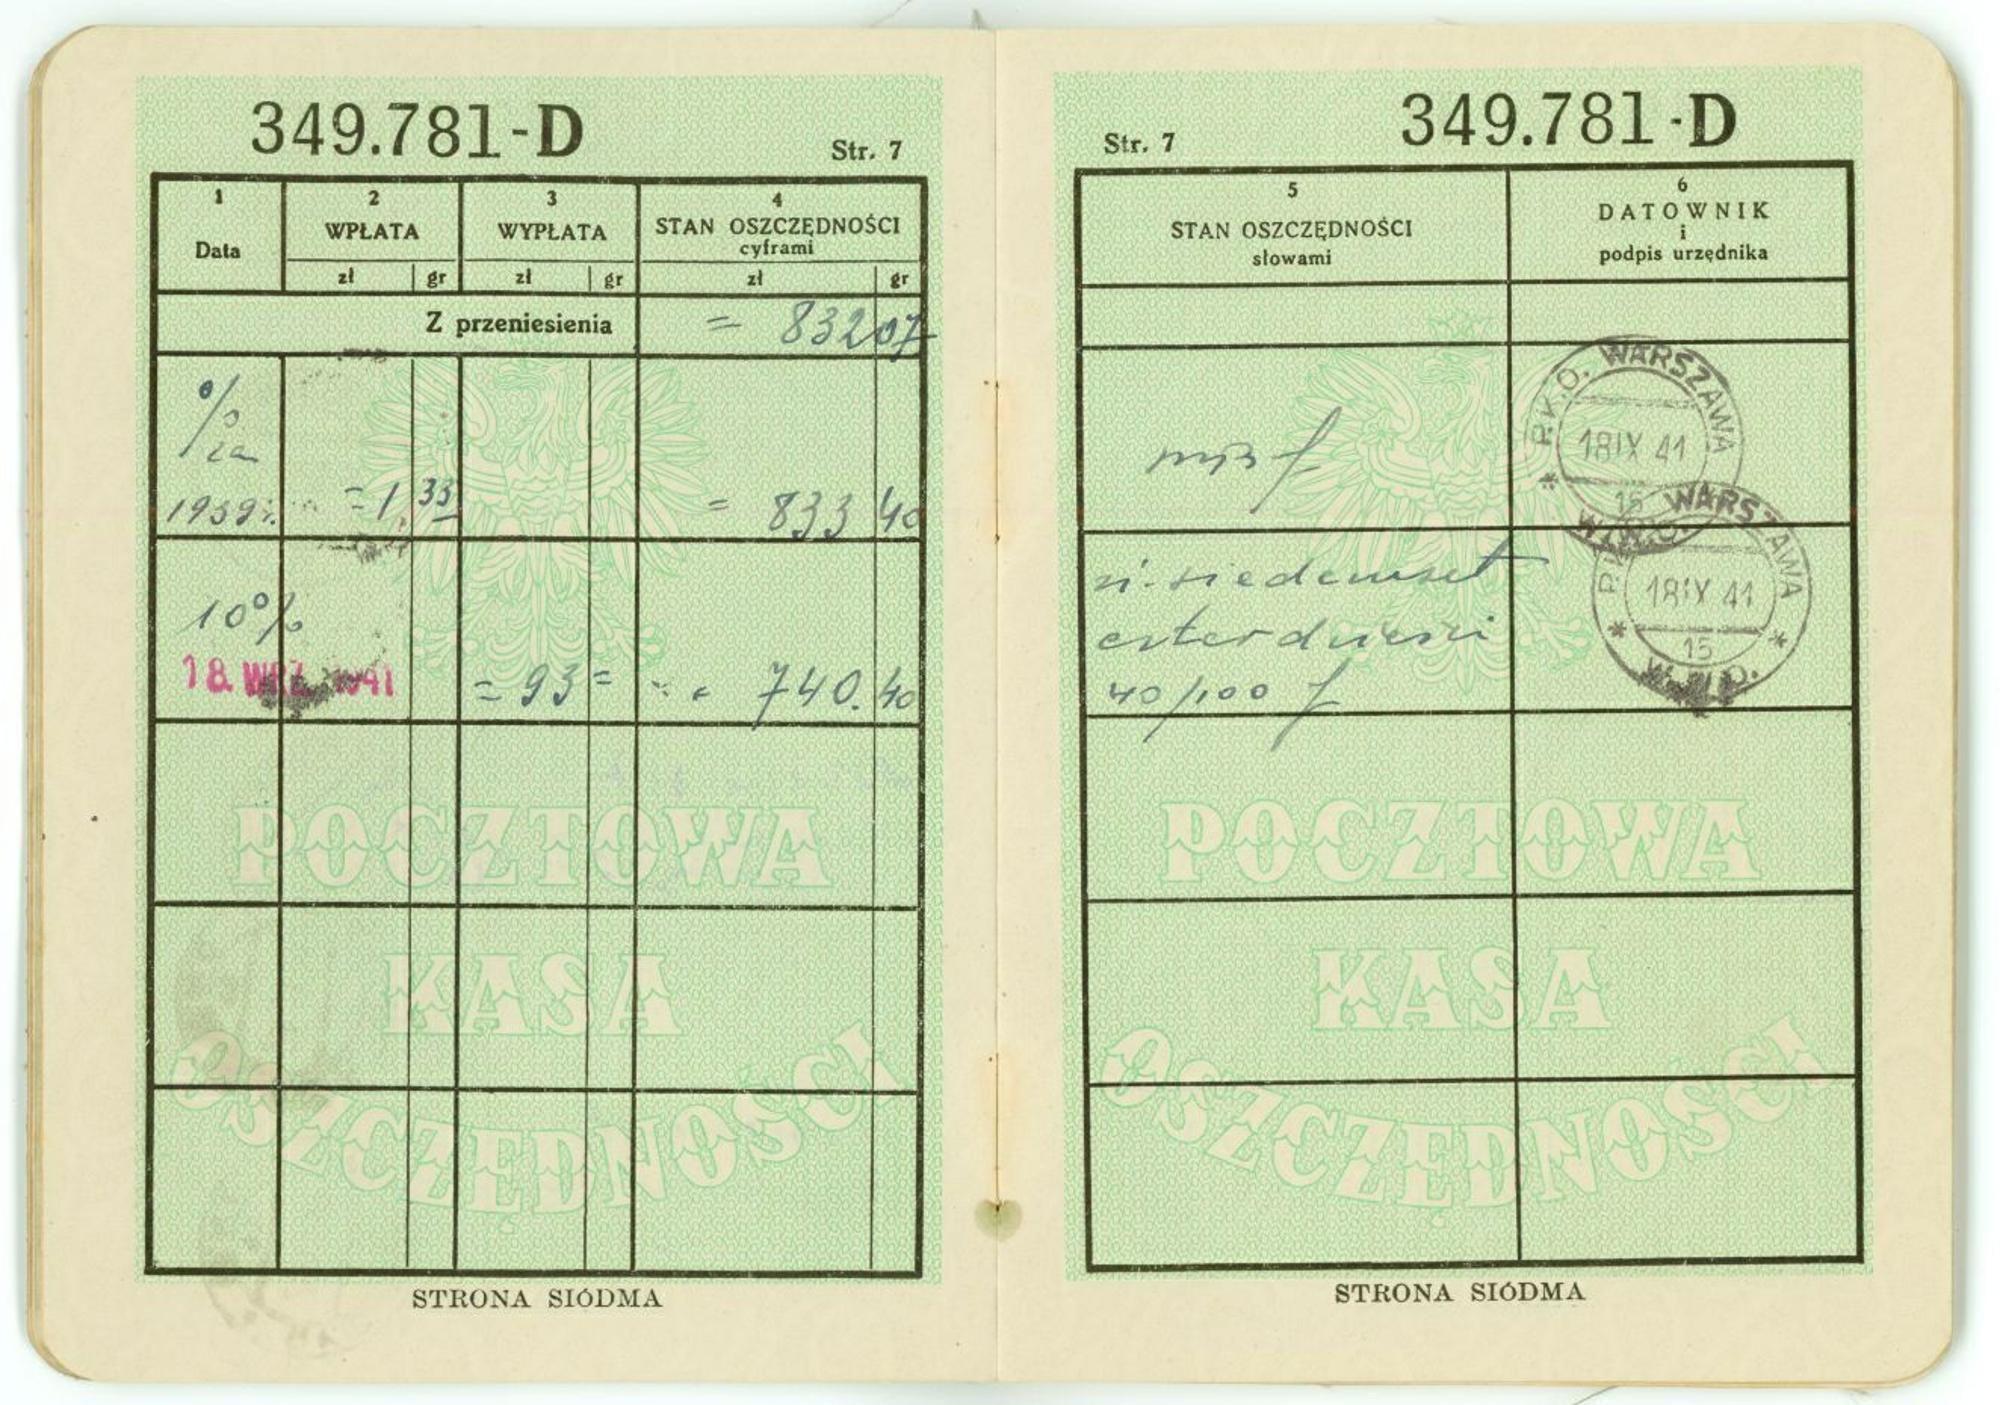 349.781-D
Str. 7
1
Data
2
WPŁATA
zł gr
3
WYPŁATA
zł gr
4
STAN OSZCZĘDNOŚCI
cyframi
zł gr
Z przeniesienia = 832 07
%
za
1939r. = 1,33 = 833 40
10%
18. WRZ. 1941 = 93 = 740.40
POCZTOWA
KASA
OSZCZĘDNOŚCI
STRONA SIÓDMA
Str. 7
349.781-D
5
STAN OSZCZĘDNOŚCI
słowami
6
DATOWNIK
i
podpis urzędnika
P.K.O. WARSZAWA
18 IX 41
15
P.K.O. WARSZAWA
18 IX 41
15
zł. siedemset
czterdzieści
40/100
POCZTOWA
KASA
OSZCZĘDNOŚCI
STRONA SIÓDMA